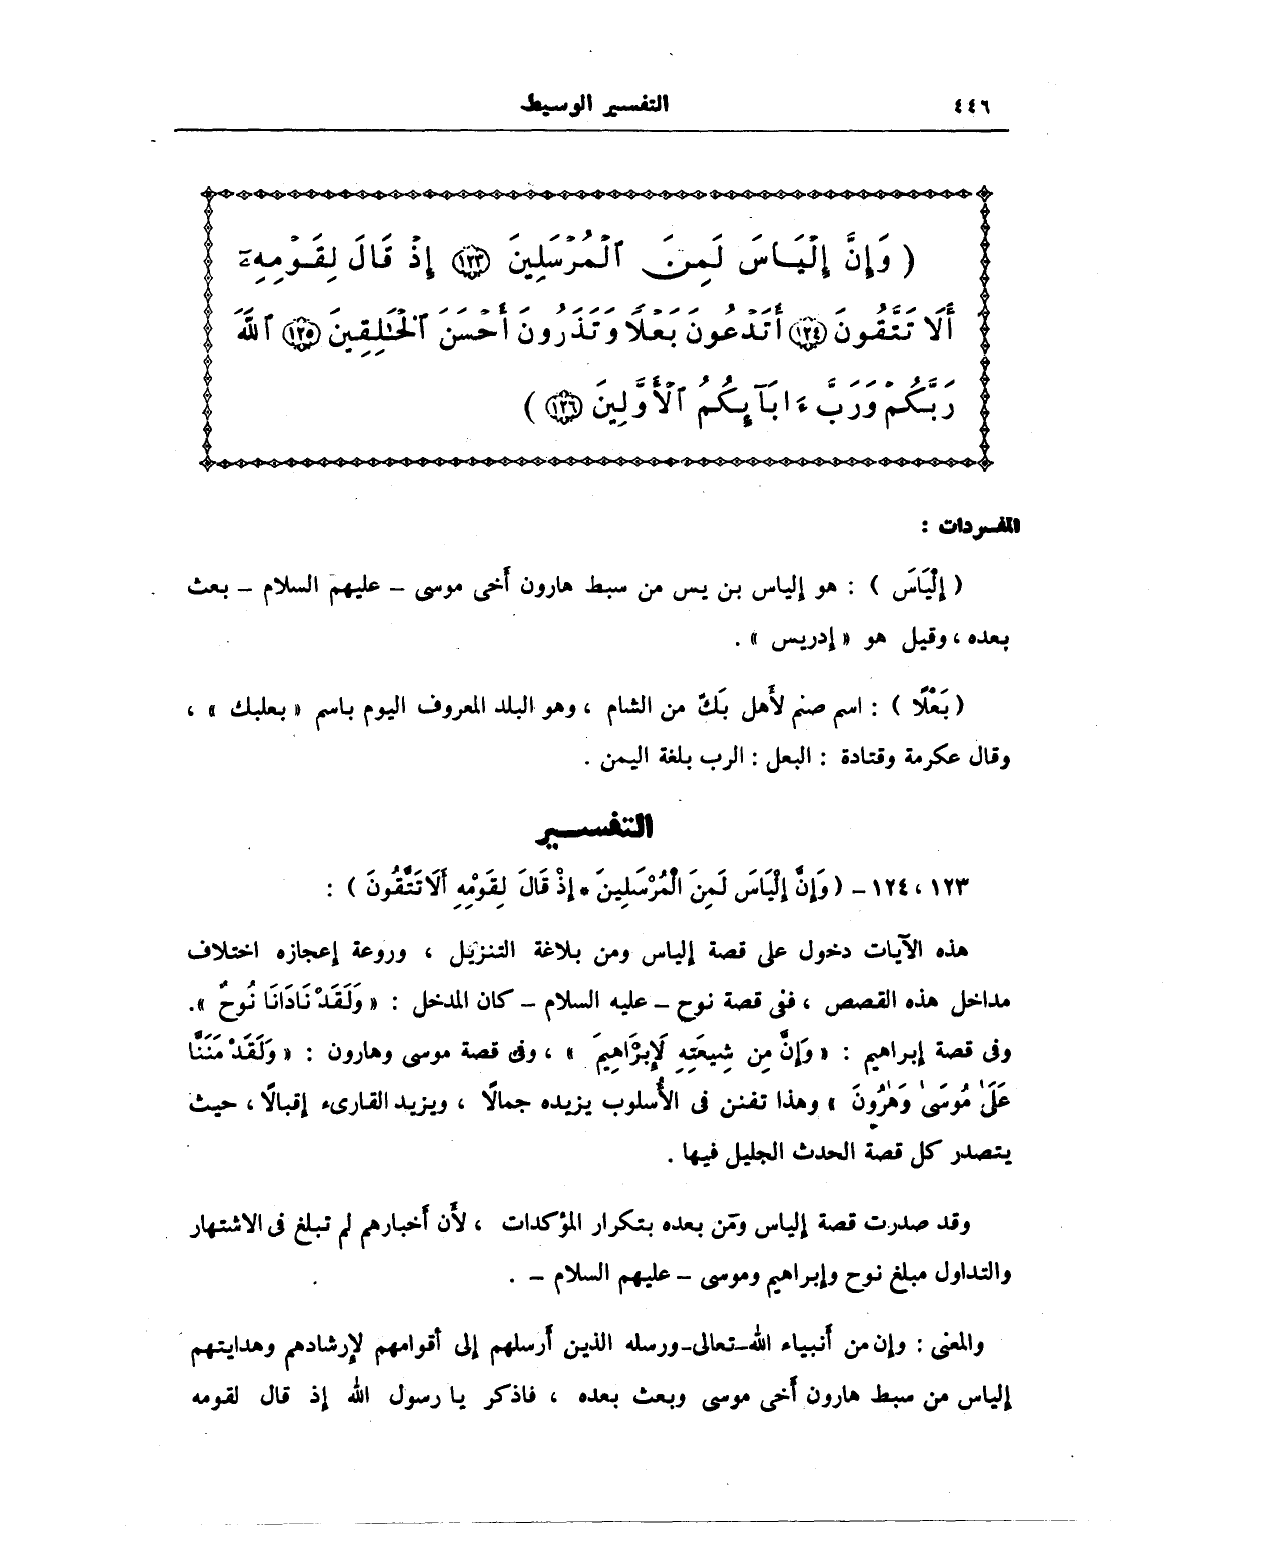 ٤٤٦
التفسير الوسيط
( وَإِنَّ إِلْيَاسَ لَمِنَ ٱلْمُرْسَلِينَ ١٢٣ إِذْ قَالَ لِقَوْمِهِۦٓ
أَلَا تَتَّقُونَ ١٢٤ أَتَدْعُونَ بَعْلًا وَتَذَرُونَ أَحْسَنَ ٱلْخَٰلِقِينَ ١٢٥ ٱللَّهَ
رَبَّكُمْ وَرَبَّ ءَابَآئِكُمُ ٱلْأَوَّلِينَ ١٢٦ )
المفردات :
( إِلْيَاسَ ) : هو إلياس بن يس من سبط هارون أَخى موسى – عليهم السلام – بعث
بعده ، وقيل هو « إدريس » .
( بَعْلًا ) : اسم صنم لأَهل بَكّ من الشام ، وهو البلد المعروف اليوم باسم « بعلبك » ،
وقال عكرمة وقتادة : البعل : الرب بلغة اليمن .
التفسير
١٢٣ ، ١٢٤ – ( وَإِنَّ إِلْيَاسَ لَمِنَ الْمُرْسَلِينَ * إِذْ قَالَ لِقَوْمِهِ أَلَا تَتَّقُونَ ) :
هذه الآيات دخول على قصة إلياس ومن بلاغة التنزيل ، وروعة إعجازه اختلاف
مداخل هذه القصص ، ففى قصة نوح – عليه السلام – كان المدخل : « وَلَقَدْ نَادَانَا نُوحٌ ».
وفى قصة إبراهيم : « وَإِنَّ مِن شِيعَتِهِ لَإِبْرَاهِيمَ » ، وفى قصة موسى وهارون : « وَلَقَدْ مَنَنَّا
عَلَىٰ مُوسَىٰ وَهَٰرُونَ » وهذا تفنن فى الأُسلوب يزيده جمالًا ، ويزيد القارىء إقبالًا ، حيث
يتصدر كل قصة الحدث الجليل فيها .
وقد صدرت قصة إلياس ومَن بعده بتكرار المؤكدات ، لأَن أَخبارهم لم تبلغ فى الاشتهار
والتداول مبلغ نوح وإبراهيم وموسى – عليهم السلام – .
والمعنى : وإن من أَنبياء الله–تعالى–ورسله الذين أَرسلهم إلى أَقوامهم لإرشادهم وهدايتهم
إلياس من سبط هارون أَخى موسى وبعث بعده ، فاذكر يا رسول الله إذ قال لقومه